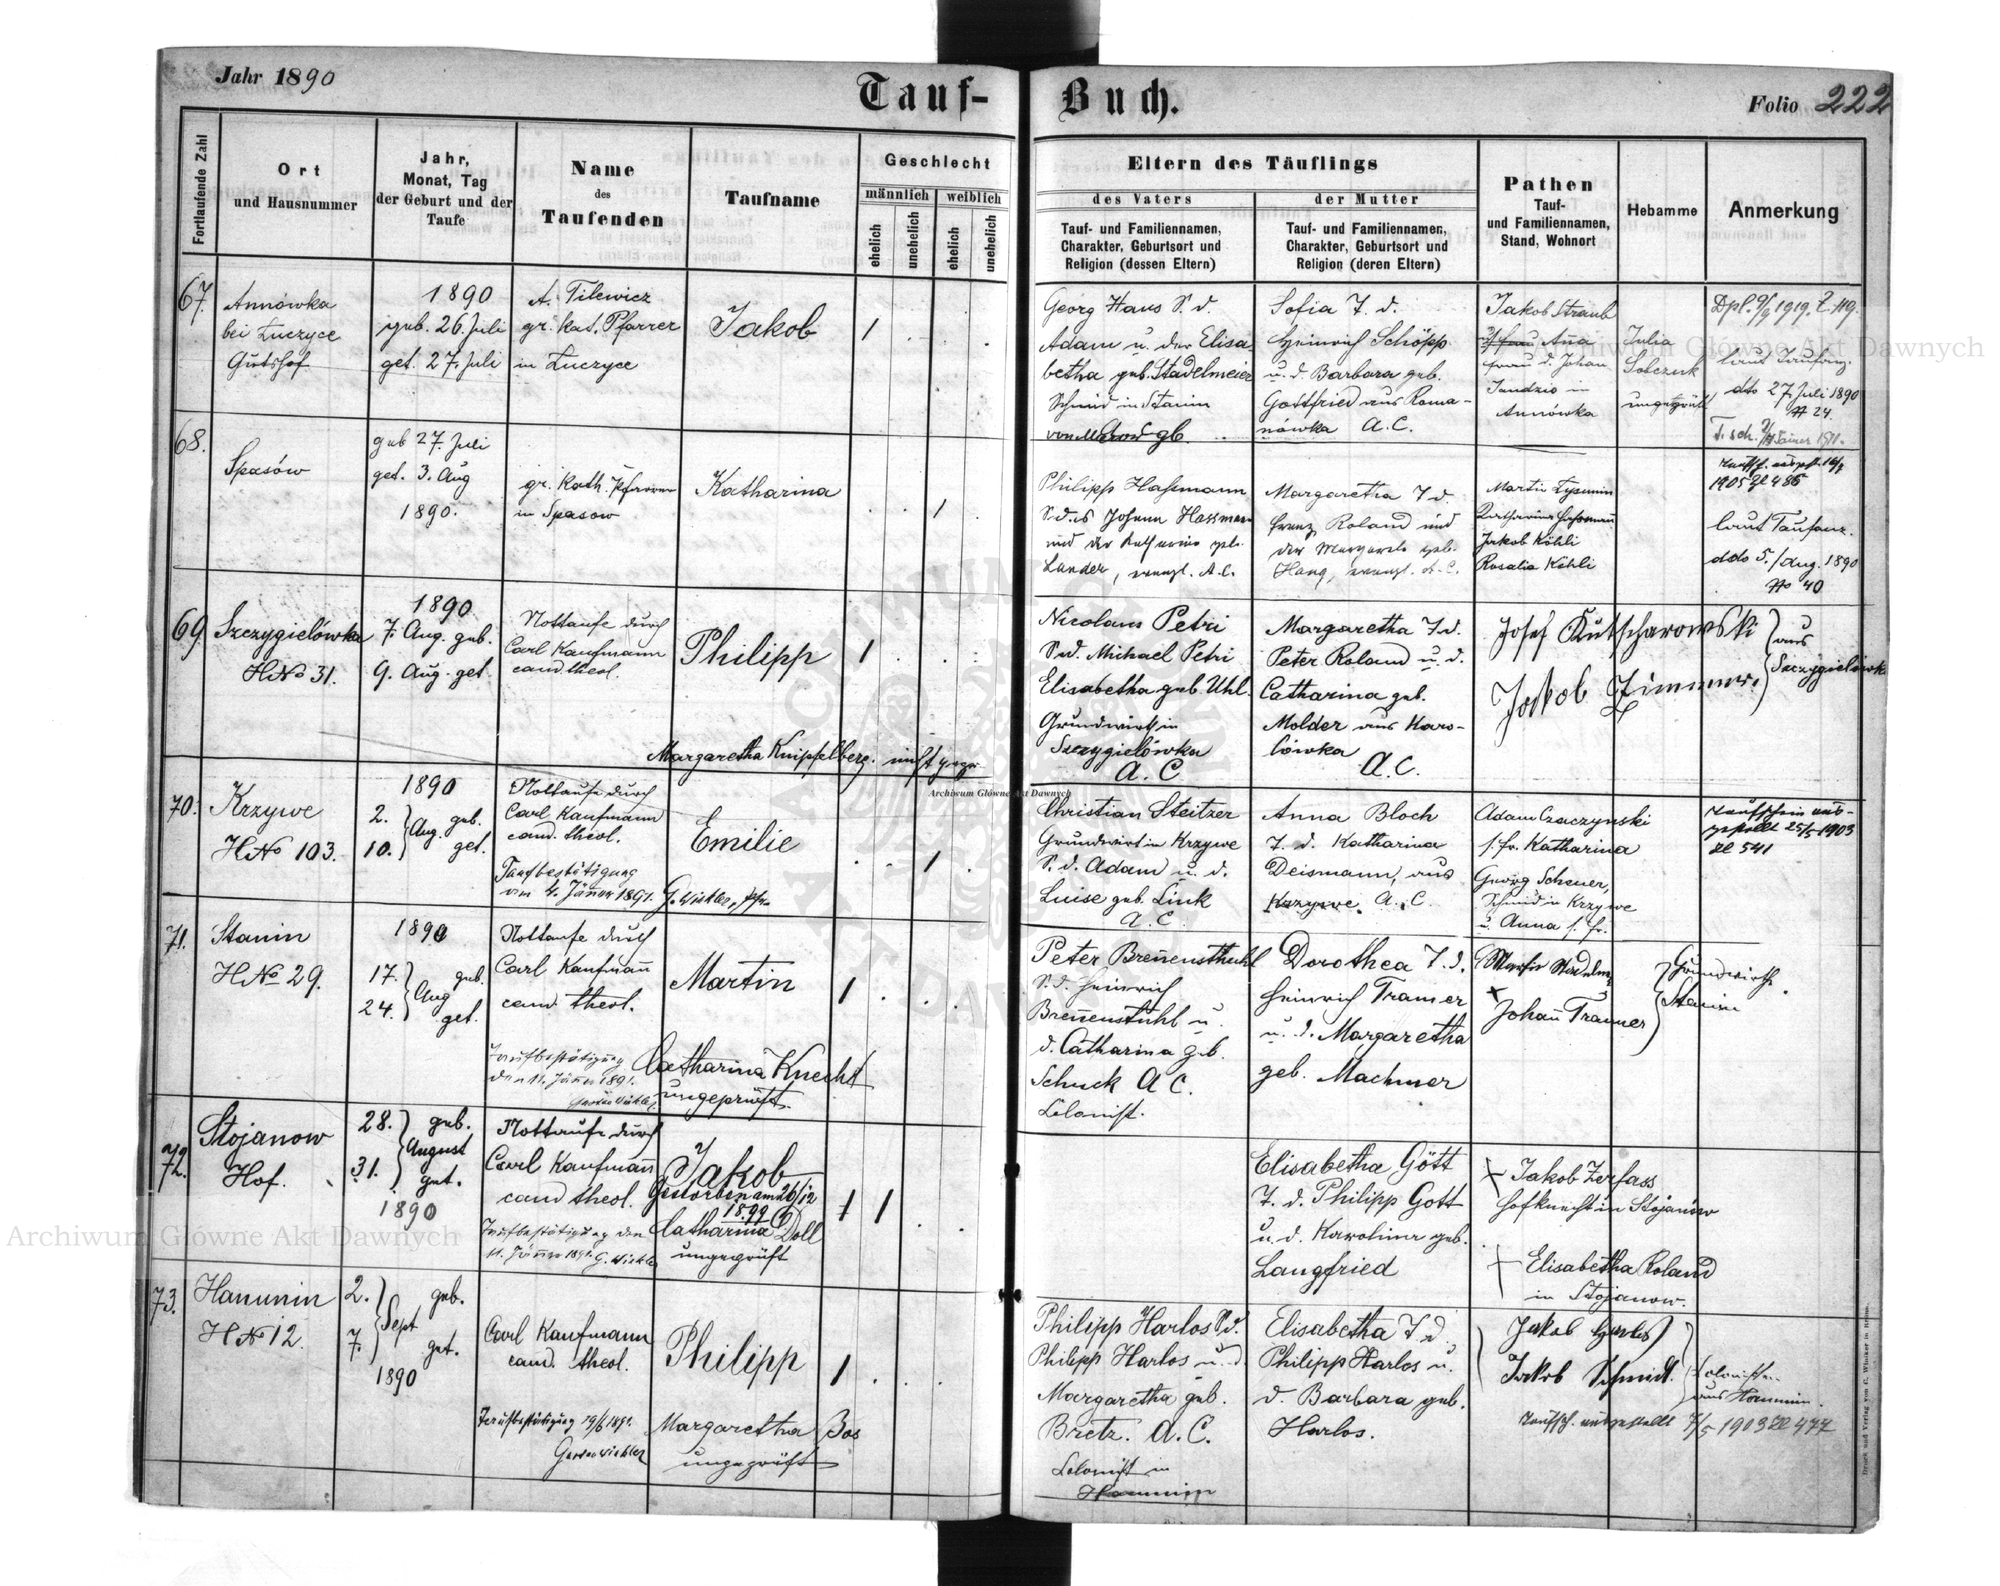 Jahr 1890
Tauf-Buch.
Folio 222
Fortlaufende Zahl
Ort
und Hausnummer
Jahr,
Monat, Tag
der Geburt und der
Taufe
Name
des
Taufenden
Taufname
Geschlecht
männlich
weiblich
ehelich
unehelich
ehelich
unehelich
Eltern des Täuflings
des Vaters
Tauf- und Familiennamen,
Charakter, Geburtsort und
Religion (dessen Eltern)
der Mutter
Tauf- und Familiennamen,
Charakter, Geburtsort und
Religion (deren Eltern)
Pathen
Tauf-
und Familiennamen,
Stand, Wohnort
Hebamme
Anmerkung
67.
Annówka
bei Łuczyce
Gutshof
1890
geb. 26. Juli
get. 27. Juli
A. Tilewicz
gr. kat. Pfarrer
in Łuczyce
Jakob
1
Georg Haus S. d.
Adam u. der Elisa-
betha geb. Stadelmeier
Schmid in Stanin
Sofia T. d.
Heinrich Schöpp
u. d. Barbara geb.
Gottfried aus Roma-
nówka A.C.
Jakob Straub
Anna
frau d. Johan
in
Annówka
Julia
Sobczuk
ungeprüft
Dpl. 9/9 1919. Z. 119.
laut Taufanz.
dto 27 Juli 1890
No 24.
68.
Spasów
geb 27. Juli
get. 3. Aug
1890.
gr. kath. Pfarrer
in Spasow
Katharina
1
Philipp Hassmann
S. d. des Johann Hassmann
und der Katharina geb.
Lander, evangl. A.C.
Margaretha T d.
Franz Roland und
der Margarete geb.
Haag, evangl. A.C.
Martin
Katharina Hassmann
Jakob Köhli
Rosalia Köhli
1905 Zl 486
laut Taufanz.
ddo 5./Aug. 1890
No 40
69.
Szczygielówka
HNo 31.
1890
7. Aug. geb.
9. Aug. get.
Nottaufe durch
Carl Kaufmann
cand. theol.
Philipp
1
Margaretha Knipfelberg. nicht gepr.
Nicolaus Petri
S. d. Michael Petri
Elisabetha geb. Uhl.
Grundwirth in
Szczygielówka
A.C.
Margaretha T. d.
Peter Roland u. d.
Catharina geb.
Molder aus Karo-
lówka
A.C.
Josef Kutscharowski
Jakob Zimmer.
aus
Szczygielówka
70.
Krzywe
HNo 103.
1890
2. geb.
Aug.
10. get.
Nottaufe durch
Carl Kaufmann
cand. theol.
Taufbestätigung
vom 4. Jänner 1891. G. Wickler, Pfr.
Emilie
1
Christian Steitzer
Grundwirt in Krzywe
S. d. Adam u. d.
Luise geb. Link
A.C.
Anna Bloch
T. d. Katharina
Deismann, aus
Krzywe. A.C.
Adam Czaczynski
s. fr. Katharina
Georg Scheuer,
Schmid in Krzywe
u. Anna s. fr.
Taufschein aus-
gestellt 25/5 1903
Zl 541
71.
Stanin
HNo 29.
1890
17. geb.
Aug
24. get.
Nottaufe durch
Carl Kaufmann
cand. theol.
Taufbestätigung
den 11. Jänner 1891.
Martin
1
Catharina Knecht
ungeprüft.
Peter Brennensthuhl
S. d. Heinrich
Brennenstuhl u.
d. Catharina geb.
Schuck A C.
Colonist.
Dorothea T. d.
Heinrich Tramer
u. d. Margaretha
geb. Machmer
Johann Tramer
Grundwirth.
Stanin
72.
Stojanow
Hof.
28. geb.
August
31. get.
1890
Nottaufe durch
Carl Kaufmann
cand theol.
Taufbestätigung den
11. Jänner 1891. G. Wickler
Jakob
Gestorben am 26/12
1899
Catharina Doll
ungeprüft
1
Elisabetha Gött
T. d. Philipp Gott
u. d. Karolina geb.
Langfried
Jakob Zerfass
Hofknecht in Stojanów
Elisabetha Roland
in Stojanow.
73.
Hanunin
HNo 12.
2. geb.
Sept
7. get.
1890
Carl Kaufmann
cand. theol.
Taufbestätigung 19/6 1891.
Philipp
1
Margaretha Bos
ungeprüft
Philipp Harlos S. d.
Philipp Harlos u. d.
Margaretha geb.
Bretz. A.C.
Colonist in
Hanunin
Elisabetha T. d.
Philipp Harlos u.
d. Barbara geb.
Harlos.
Jakob Harlos
Jakob Schmidt.
Colonisten
aus Hanunin.
Taufsch. ausgestellt 7/5 1903 Zl 477
Archiwum Główne Akt Dawnych
Archiwum Główne Akt Dawnych
Archiwum Główne Akt Dawnych